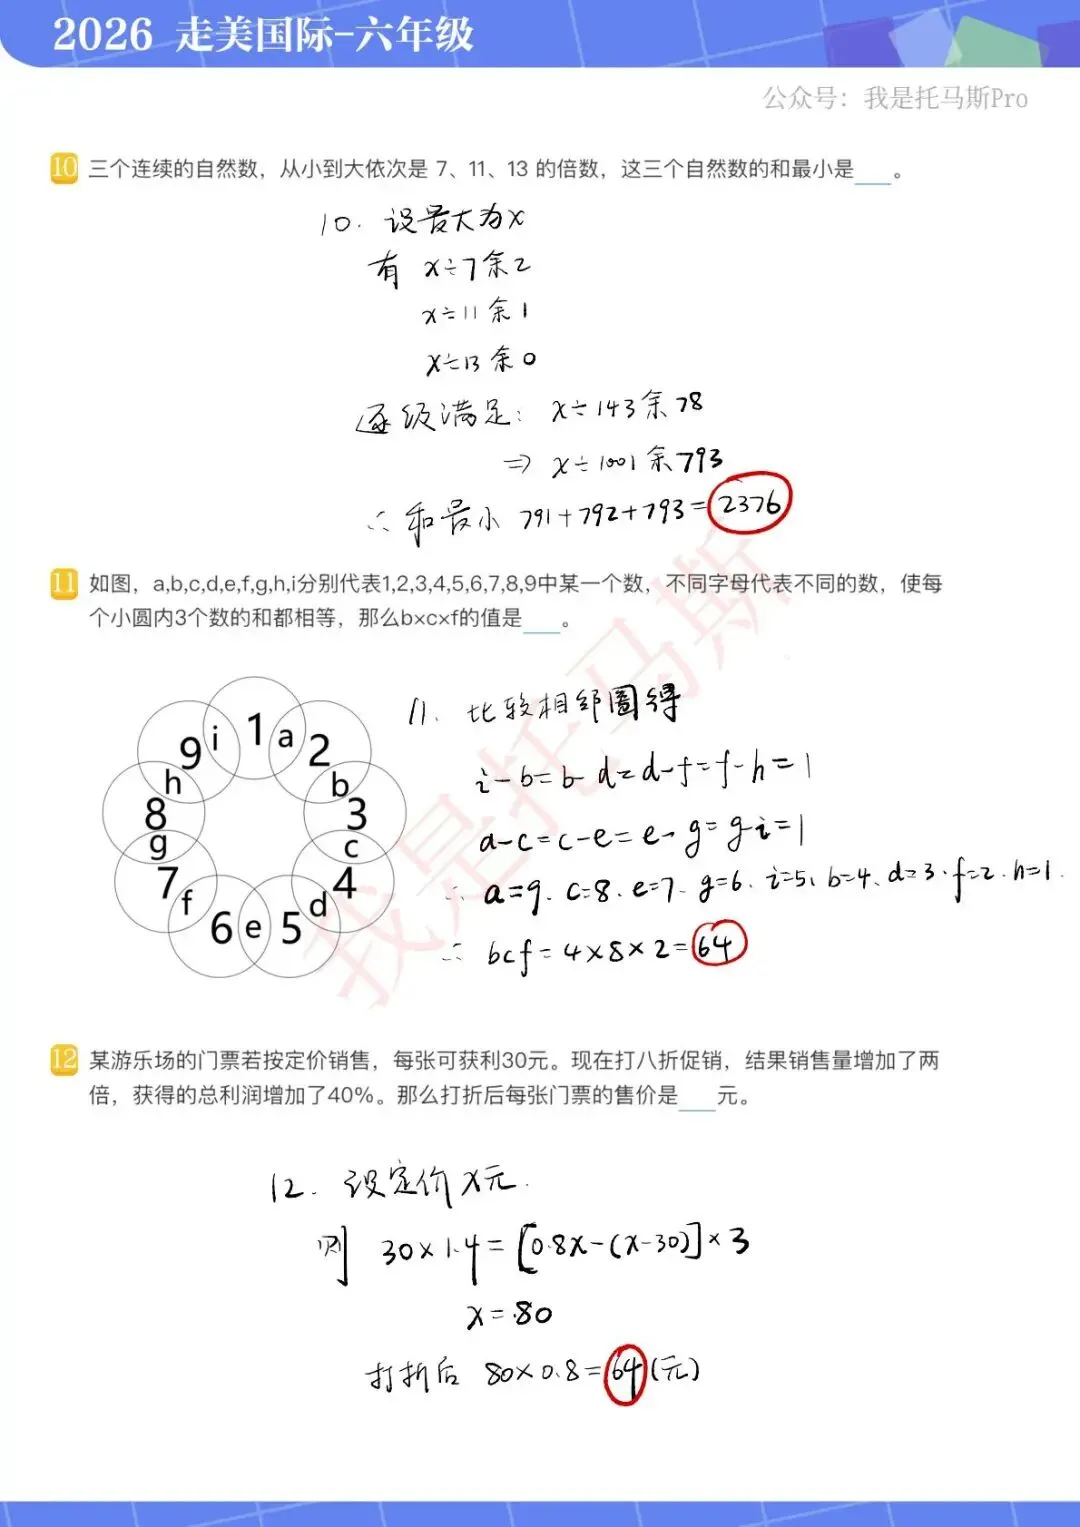 2026 走美国际-六年级
公众号：我是托马斯Pro
10 三个连续的自然数，从小到大依次是 7、11、13 的倍数，这三个自然数的和最小是___。
10. 设最大为x
有 x÷7余2
x÷11余1
x÷13余0
逐级满足: x÷143余78
⇒ x÷1001余793
∴ 和最小 791+792+793=2376
11 如图，a,b,c,d,e,f,g,h,i分别代表1,2,3,4,5,6,7,8,9中某一个数，不同字母代表不同的数，使每
个小圆内3个数的和都相等，那么b×c×f的值是___。
1 a 2 b 3 c 4 d 5 e 6 f 7 g 8 h 9 i
11. 比较相邻圆得
i-b=b-d=d-f=f-h=1
a-c=c-e=e-g=g-i=1
∴ a=9. c=8. e=7. g=6. i=5、b=4、d=3.f=2.h=1.
∴ bcf=4×8×2=64
我是托马斯
12 某游乐场的门票若按定价销售，每张可获利30元。现在打八折促销，结果销售量增加了两
倍，获得的总利润增加了40%。那么打折后每张门票的售价是___元。
12. 设定价x元.
则 30×1.4=[0.8x-(x-30)]×3
x=80
打折后 80×0.8=64(元)